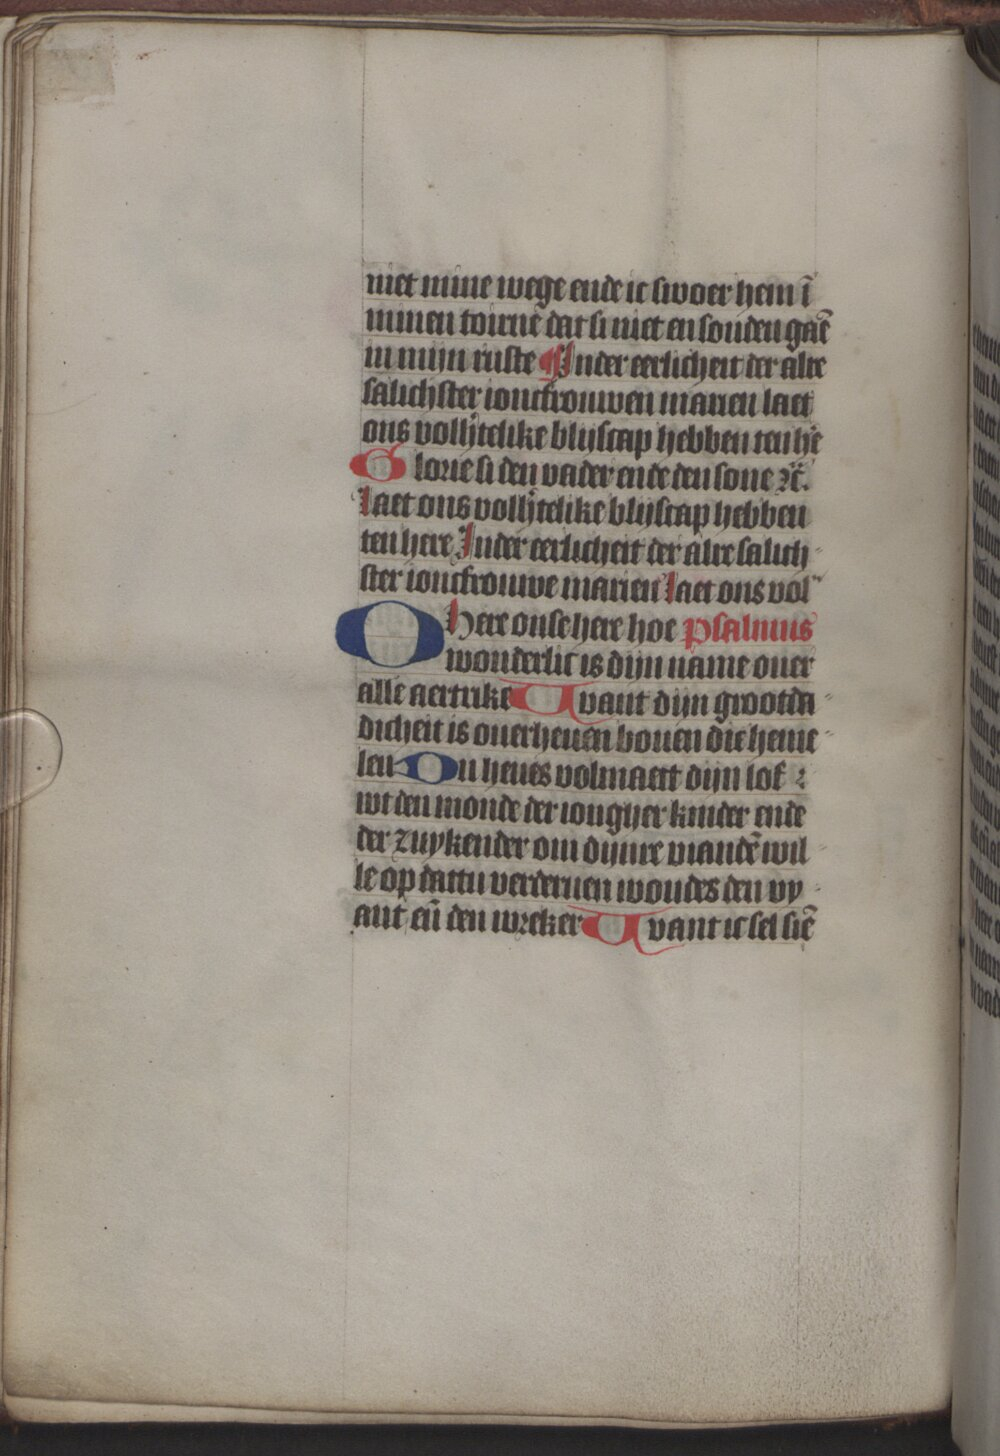 niet mine wege ende ic swoer hem ī
minen toirnē dat si niet en souden gaē
in mijn ruste ¶ Inder eerlicheit der alre
salichster ioncfrouwen marien laet
ons vollijtelike blijscap hebben ten hē
Glorie si den vader ende den sone ⁊c̄.
laet ons vollijtelike blijscap hebben
ten here Inder eerlicheit der alre salich-
ster ioncfrouwe marien laet ons vol-
O here onse here hoe psalmus
wonderlic is dijn name ouer
alle aertrike Want dijn grootda-
dicheit is ouerheuen bouen die heme-
len Du heues volmaect dijn lof :
wt den monde der iongher kinder ende
der zuykender om dijnre viandē wil-
le op dattu verderuen woudes den vy-
ant eñ den wreker Want ic sel siē